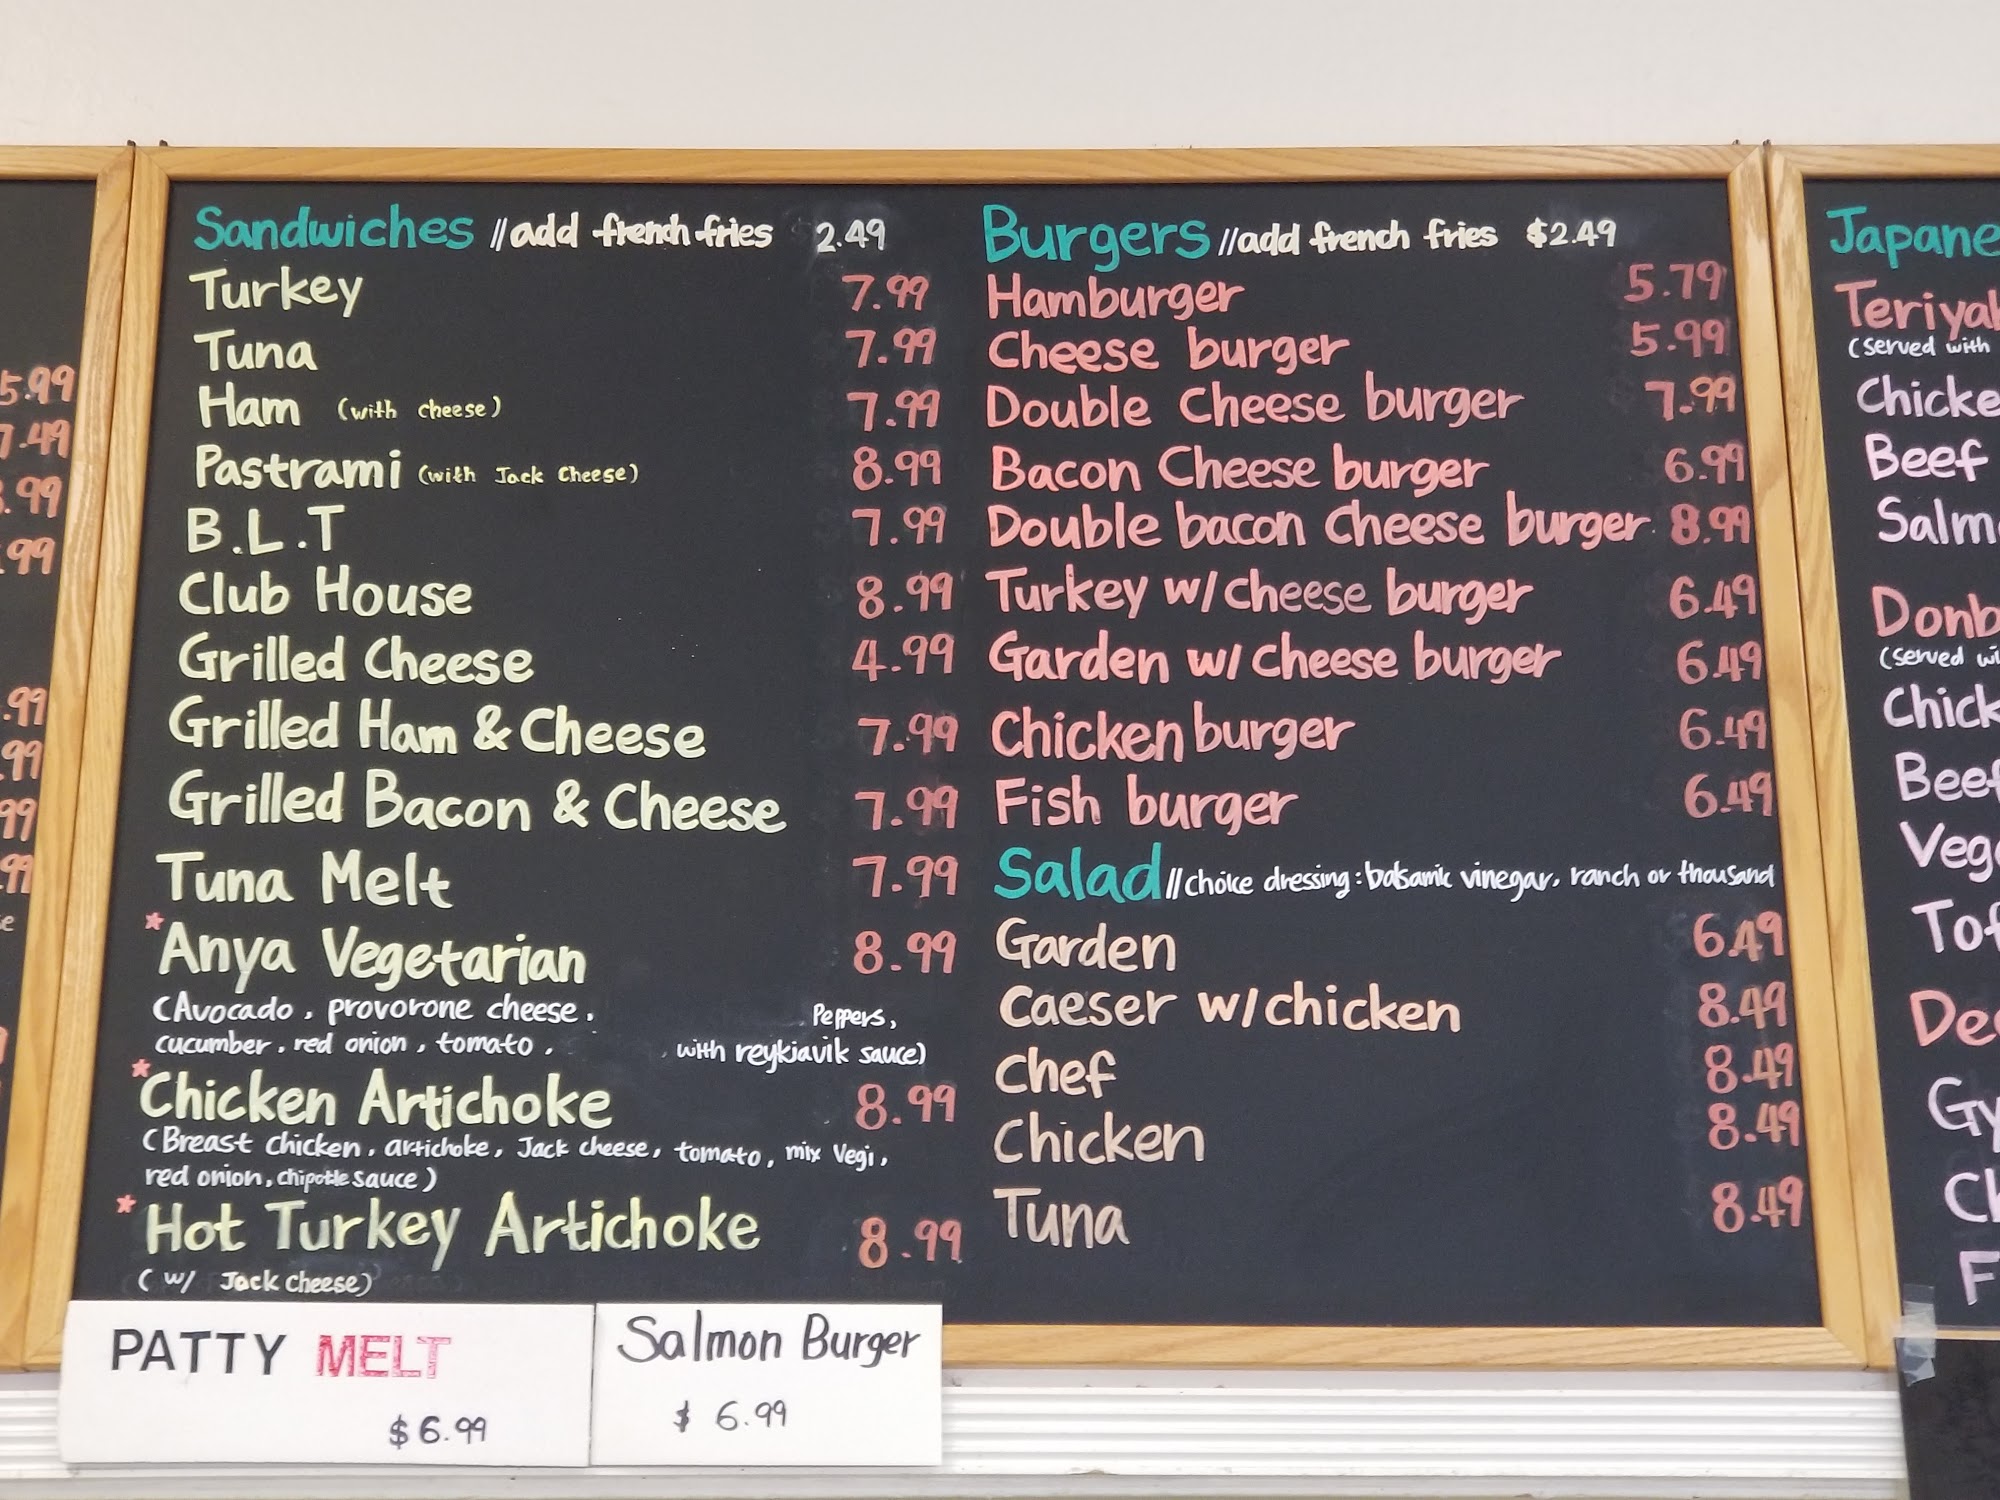 Sandwiches //add french fries 2.49
Turkey 7.99
Tuna 7.99
Ham (with cheese) 7.99
Pastrami (with Jack Cheese) 8.99
B.L.T 7.99
Club House 8.99
Grilled Cheese 4.99
Grilled Ham & Cheese 7.99
Grilled Bacon & Cheese 7.99
Tuna Melt 7.99
*Anya Vegetarian 8.99
(Avocado, provorone cheese, Peppers,
cucumber, red onion, tomato, with reykjavik sauce)
*Chicken Artichoke 8.99
(Breast chicken, artichoke, Jack cheese, tomato, mix Vegi,
red onion, chipotle sauce)
*Hot Turkey Artichoke 8.99
(w/ Jack Cheese)
PATTY MELT
$6.99
Salmon Burger
$6.99
Burgers //add french fries $2.49
Hamburger 5.79
Cheese burger 5.99
Double Cheese burger 7.99
Bacon Cheese burger 6.99
Double bacon Cheese burger 8.99
Turkey w/cheese burger 6.49
Garden w/cheese burger 6.49
Chicken burger 6.49
Fish burger 6.49
Salad //choice dressing: balsamic vinegar, ranch or thousand
Garden 6.49
Caeser w/chicken 8.49
Chef 8.49
Chicken 8.49
Tuna 8.49
(served with
Beef